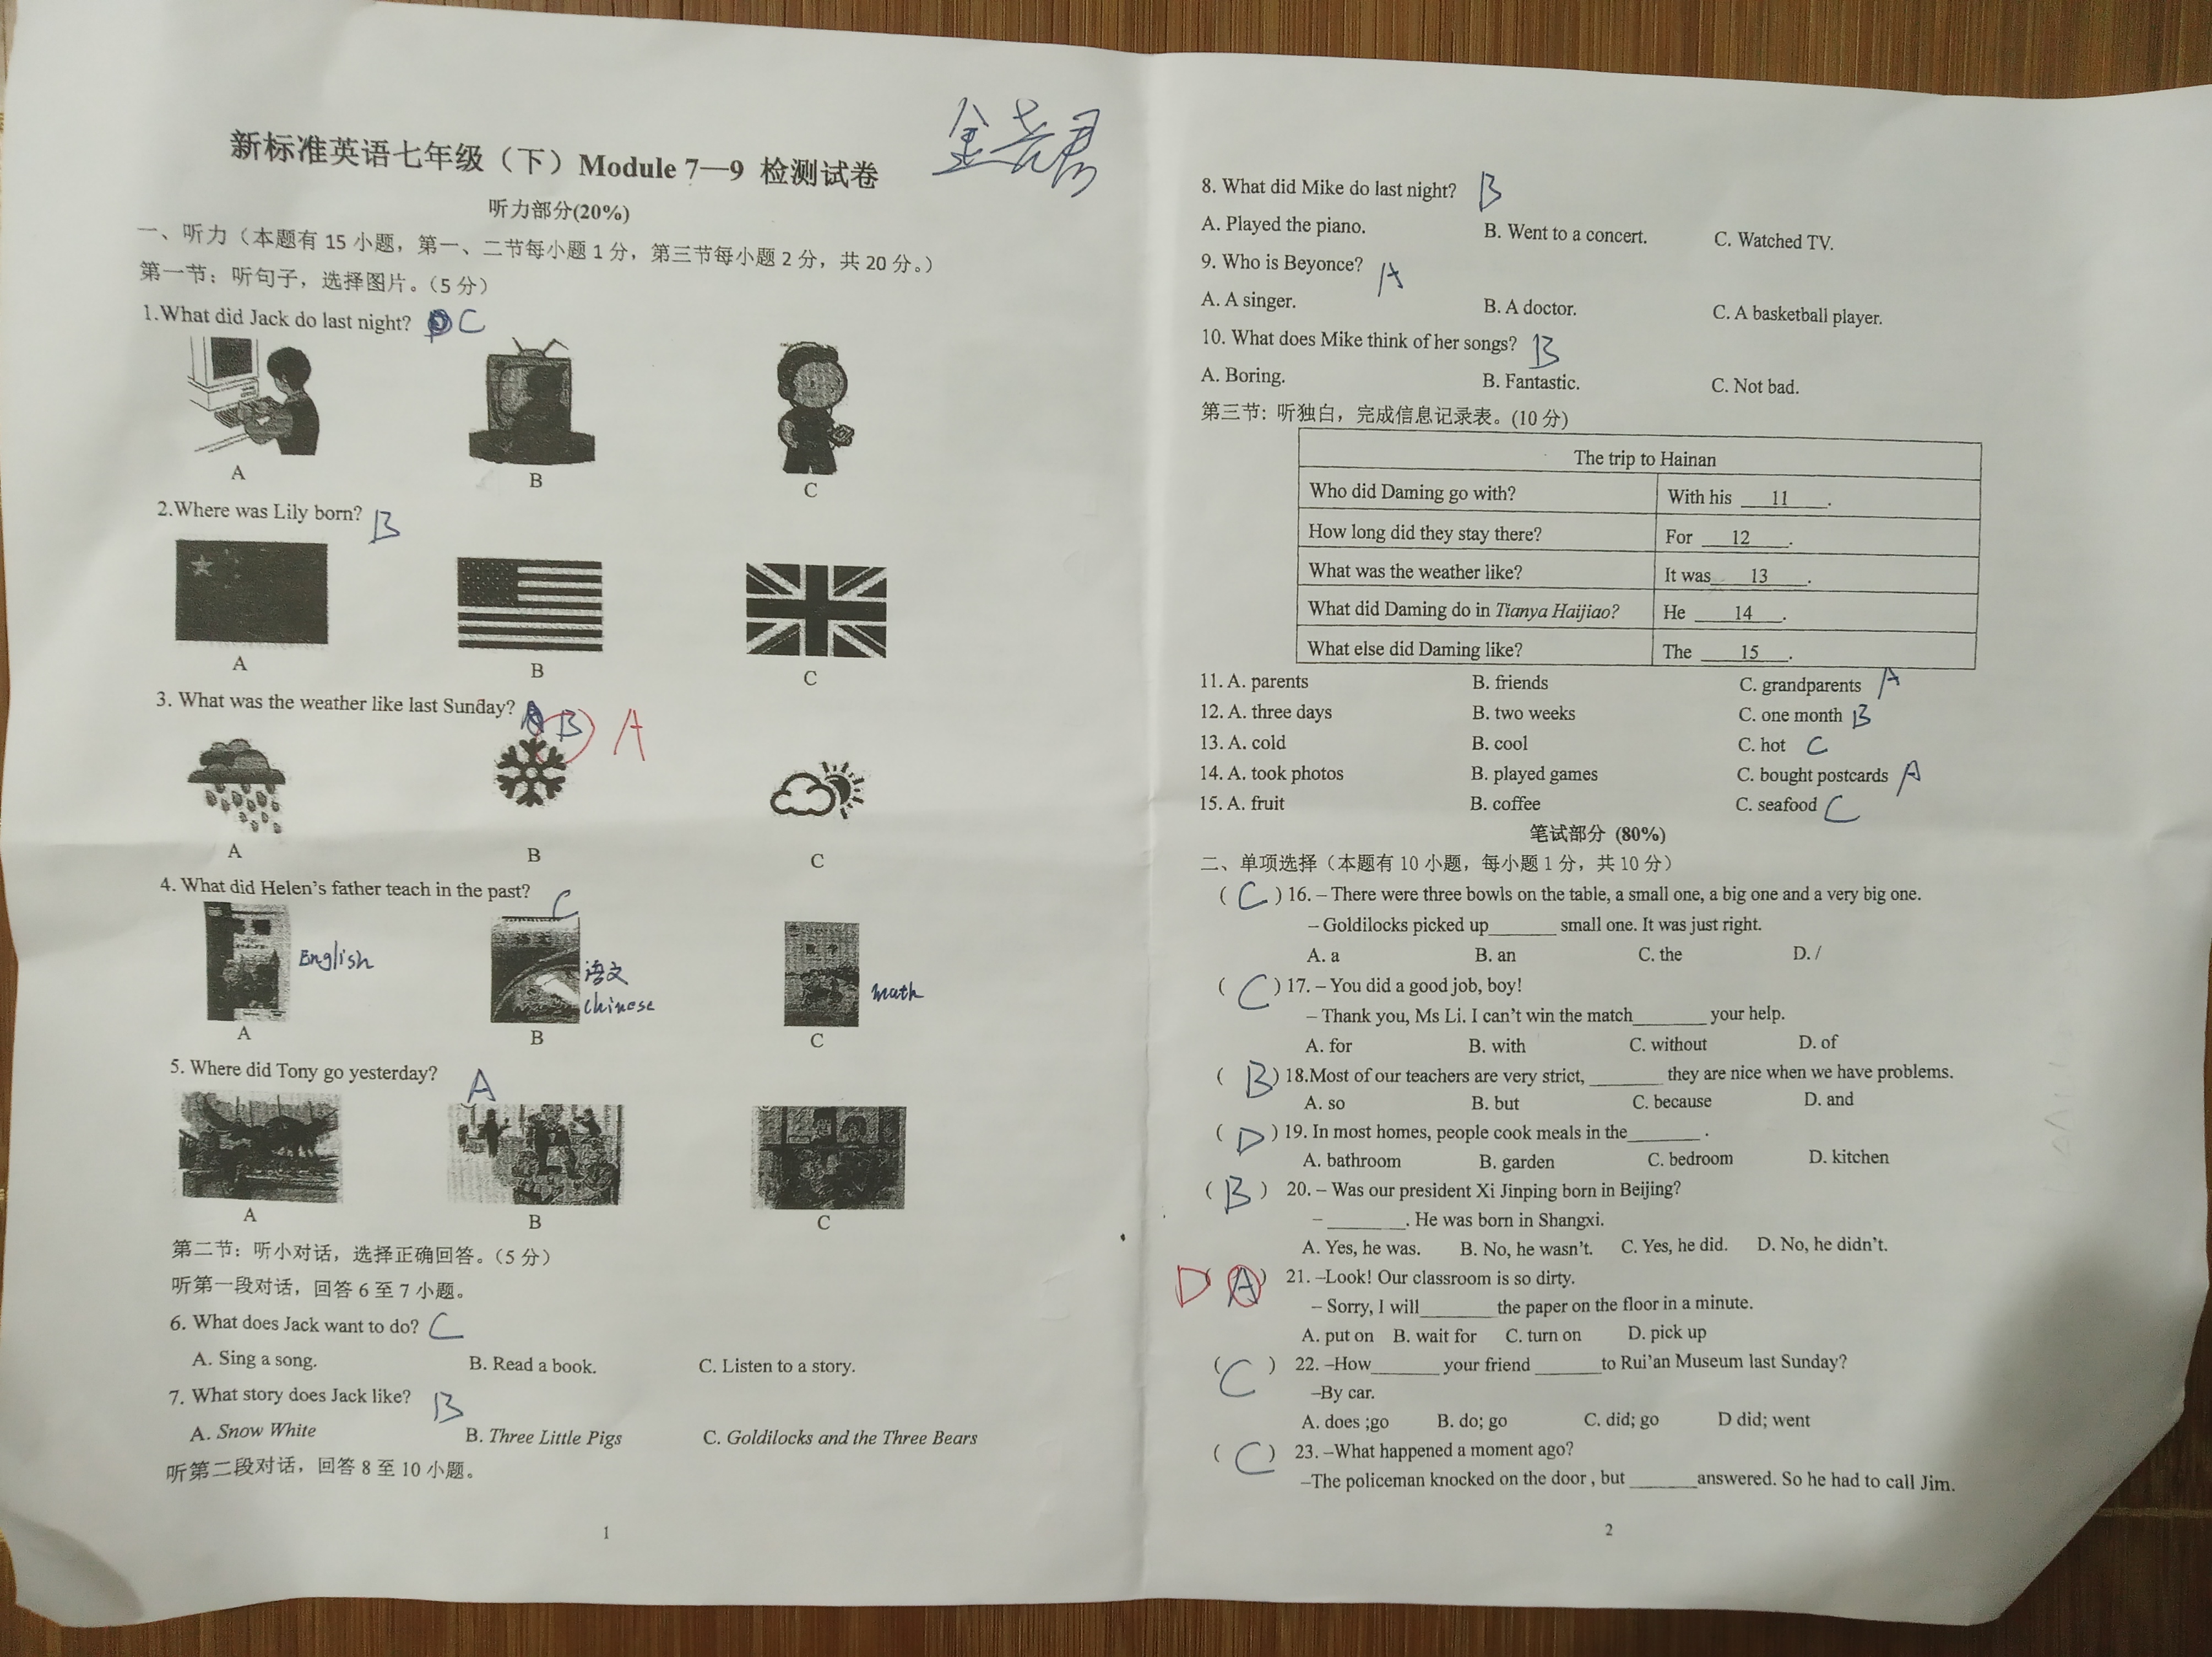 新标准英语七年级（下）Module 7—9 检测试卷
听力部分(20%)
一、听力（本题有 15 小题，第一、二节每小题 1 分，第三节每小题 2 分，共 20 分。）
第一节：听句子，选择图片。（5 分）
1.What did Jack do last night? C
A B C
2.Where was Lily born? B
A B C
3. What was the weather like last Sunday? B A
A B C
4. What did Helen's father teach in the past? C
English 语文 Chinese math
A B C
5. Where did Tony go yesterday? A
A B C
第二节：听小对话，选择正确回答。（5 分）
听第一段对话，回答 6 至 7 小题。
6. What does Jack want to do? C
A. Sing a song. B. Read a book. C. Listen to a story.
7. What story does Jack like? B
A. Snow White B. Three Little Pigs C. Goldilocks and the Three Bears
听第二段对话，回答 8 至 10 小题。
1
8. What did Mike do last night? B
A. Played the piano. B. Went to a concert. C. Watched TV.
9. Who is Beyonce? A
A. A singer. B. A doctor. C. A basketball player.
10. What does Mike think of her songs? B
A. Boring. B. Fantastic. C. Not bad.
第三节：听独白，完成信息记录表。(10 分)
The trip to Hainan
Who did Daming go with? With his 11 .
How long did they stay there? For 12 .
What was the weather like? It was 13 .
What did Daming do in Tianya Haijiao? He 14 .
What else did Daming like? The 15 .
11. A. parents B. friends C. grandparents A
12. A. three days B. two weeks C. one month B
13. A. cold B. cool C. hot C
14. A. took photos B. played games C. bought postcards A
15. A. fruit B. coffee C. seafood C
笔试部分 (80%)
二、单项选择（本题有 10 小题，每小题 1 分，共 10 分）
( C ) 16. – There were three bowls on the table, a small one, a big one and a very big one.
– Goldilocks picked up_______ small one. It was just right.
A. a B. an C. the D. /
( C ) 17. – You did a good job, boy!
– Thank you, Ms Li. I can't win the match_______ your help.
A. for B. with C. without D. of
( B ) 18.Most of our teachers are very strict, _______ they are nice when we have problems.
A. so B. but C. because D. and
( D ) 19. In most homes, people cook meals in the_______ .
A. bathroom B. garden C. bedroom D. kitchen
( B ) 20. – Was our president Xi Jinping born in Beijing?
– _______. He was born in Shangxi.
A. Yes, he was. B. No, he wasn't. C. Yes, he did. D. No, he didn't.
D ( A ) 21. –Look! Our classroom is so dirty.
– Sorry, I will_______ the paper on the floor in a minute.
A. put on B. wait for C. turn on D. pick up
( C ) 22. –How_______ your friend _______to Rui'an Museum last Sunday?
–By car.
A. does ;go B. do; go C. did; go D did; went
( C ) 23. –What happened a moment ago?
–The policeman knocked on the door , but _______answered. So he had to call Jim.
2